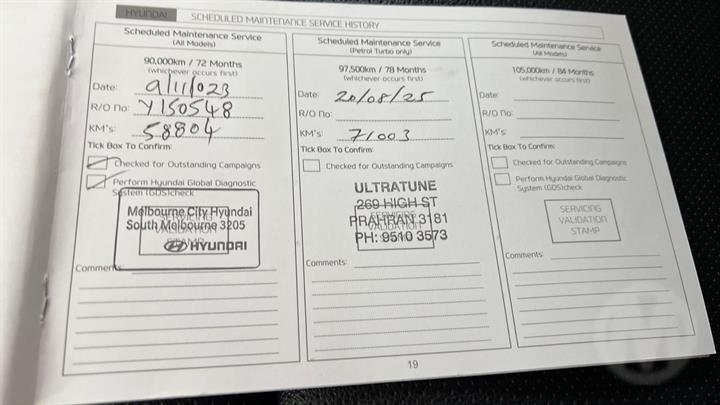 HYUNDAI SCHEDULED MAINTENANCE SERVICE HISTORY
Scheduled Maintenance Service
(All Models)
90,000km / 72 Months
(whichever occurs first)
Date: 9/11/023
R/O No: Y150548
KM's: 58804
Tick Box To Confirm:
Checked for Outstanding Campaigns
Perform Hyundai Global Diagnostic
System (GDS)check
Melbourne City Hyundai
South Melbourne 3205
HYUNDAI
SERVICING
VALIDATION
STAMP
Comments:
Scheduled Maintenance Service
(Petrol Turbo only)
97,500km / 78 Months
(whichever occurs first)
Date: 20/08/25
R/O No:
KM's: 71003
Tick Box To Confirm:
Checked for Outstanding Campaigns
ULTRATUNE
269 HIGH ST
PRAHRAN 3181
PH: 9510 3573
SERVICING
VALIDATION
STAMP
Comments:
Scheduled Maintenance Service
(All Models)
105,000km / 84 Months
(whichever occurs first)
Date:
R/O No:
KM's:
Tick Box To Confirm:
Checked for Outstanding Campaigns
Perform Hyundai Global Diagnostic
System (GDS)check
SERVICING
VALIDATION
STAMP
Comments:
19